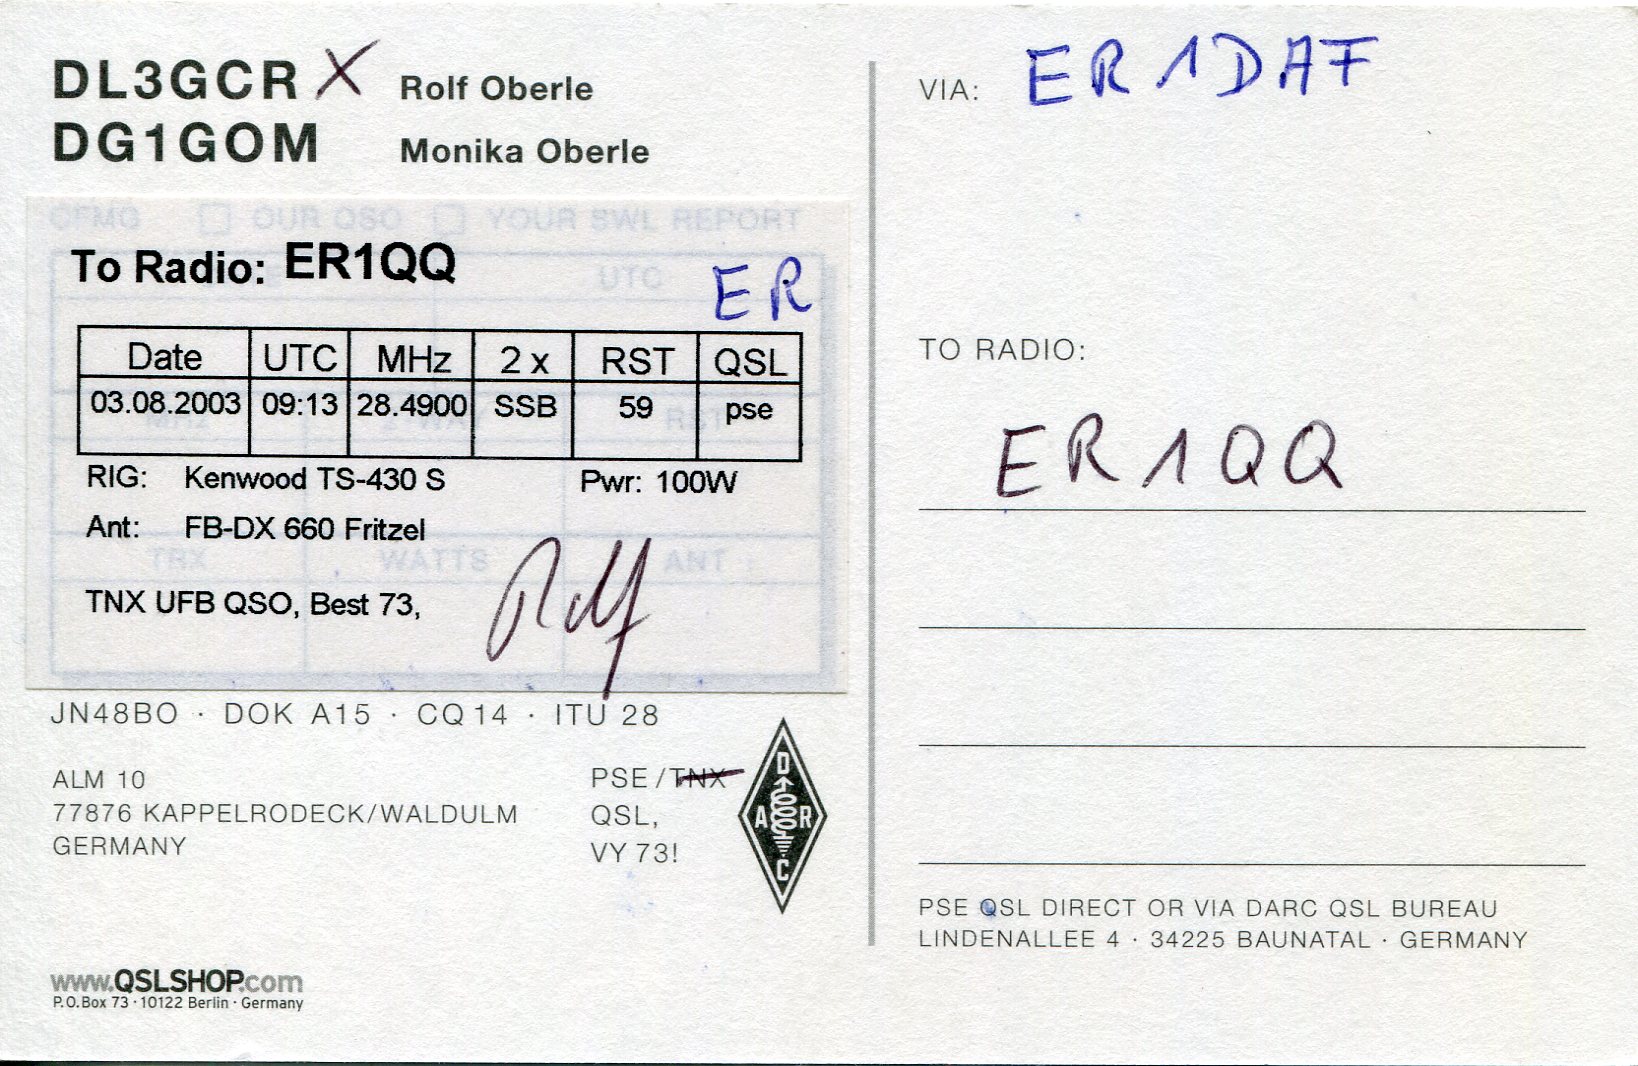 DL3GCR X Rolf Oberle
DG1GOM Monika Oberle
CFMG OUR QSO YOUR SWL REPORT
To Radio: ER1QQ
UTC
ER
Date UTC MHz 2 x RST QSL
03.08.2003 09:13 28.4900 SSB 59 pse
MHz 2-WAY RST
RIG: Kenwood TS-430 S Pwr: 100W
Ant: FB-DX 660 Fritzel
TRX WATTS ANT
TNX UFB QSO, Best 73,
Rolf
JN48BO · DOK A15 · CQ14 · ITU 28
ALM 10
77876 KAPPELRODECK/WALDULM
GERMANY
PSE/TNX
QSL,
VY 73!
D
A R
C
www.QSLSHOP.com
P.O.Box 73 · 10122 Berlin · Germany
VIA: ER1DAF
TO RADIO:
ER1QQ
PSE QSL DIRECT OR VIA DARC QSL BUREAU
LINDENALLEE 4 · 34225 BAUNATAL · GERMANY